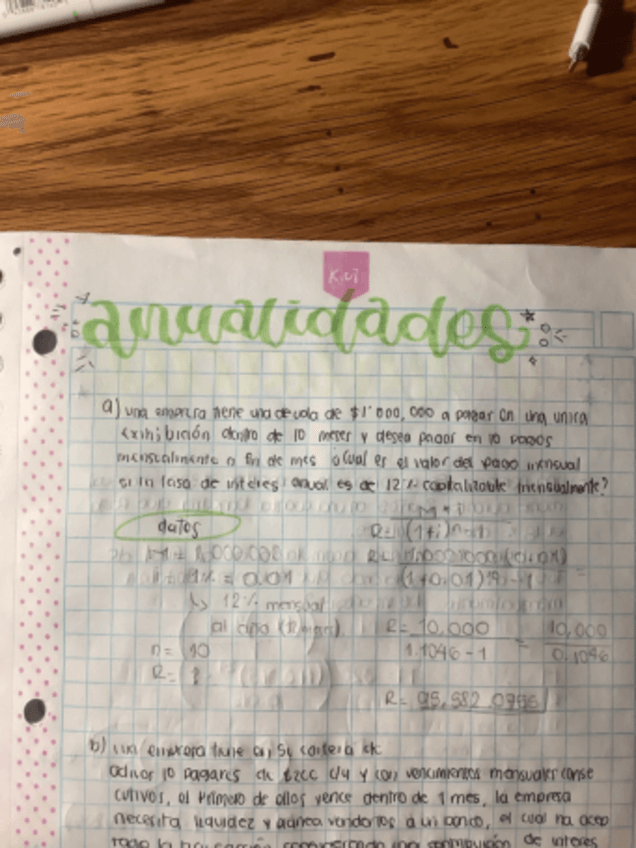 Kivi
anualidades
a) una empresa tiene una deuda de $1'000,000 a pagar en una unica
exhibición dentro de 10 meses y desea pagar en 10 pagos
mensualmente a fin de mes ¿Cual es el valor del pago mensual
si la tasa de interes anual es de 12% capitalizable mensualmente?
datos
R= (1+i)n-1
M = 1,000,000
R= 1,000,000 (0.01)
i = 1% = 0.01
(1+0.01)10 - 1
↳ 12% mensual
al año
n= 10
R= ?
R= 10,000 = 10,000
1.1046 - 1 0.1046
R= 95,582.0755
b) una empresa tiene en su cartera de
10 pagares de c/u y con vencimientos mensuales conse
cutivos, el primero de ellos vence dentro de 1 mes, la empresa
necesita liquidez y venderlos a un banco, el cual na acep
de interes